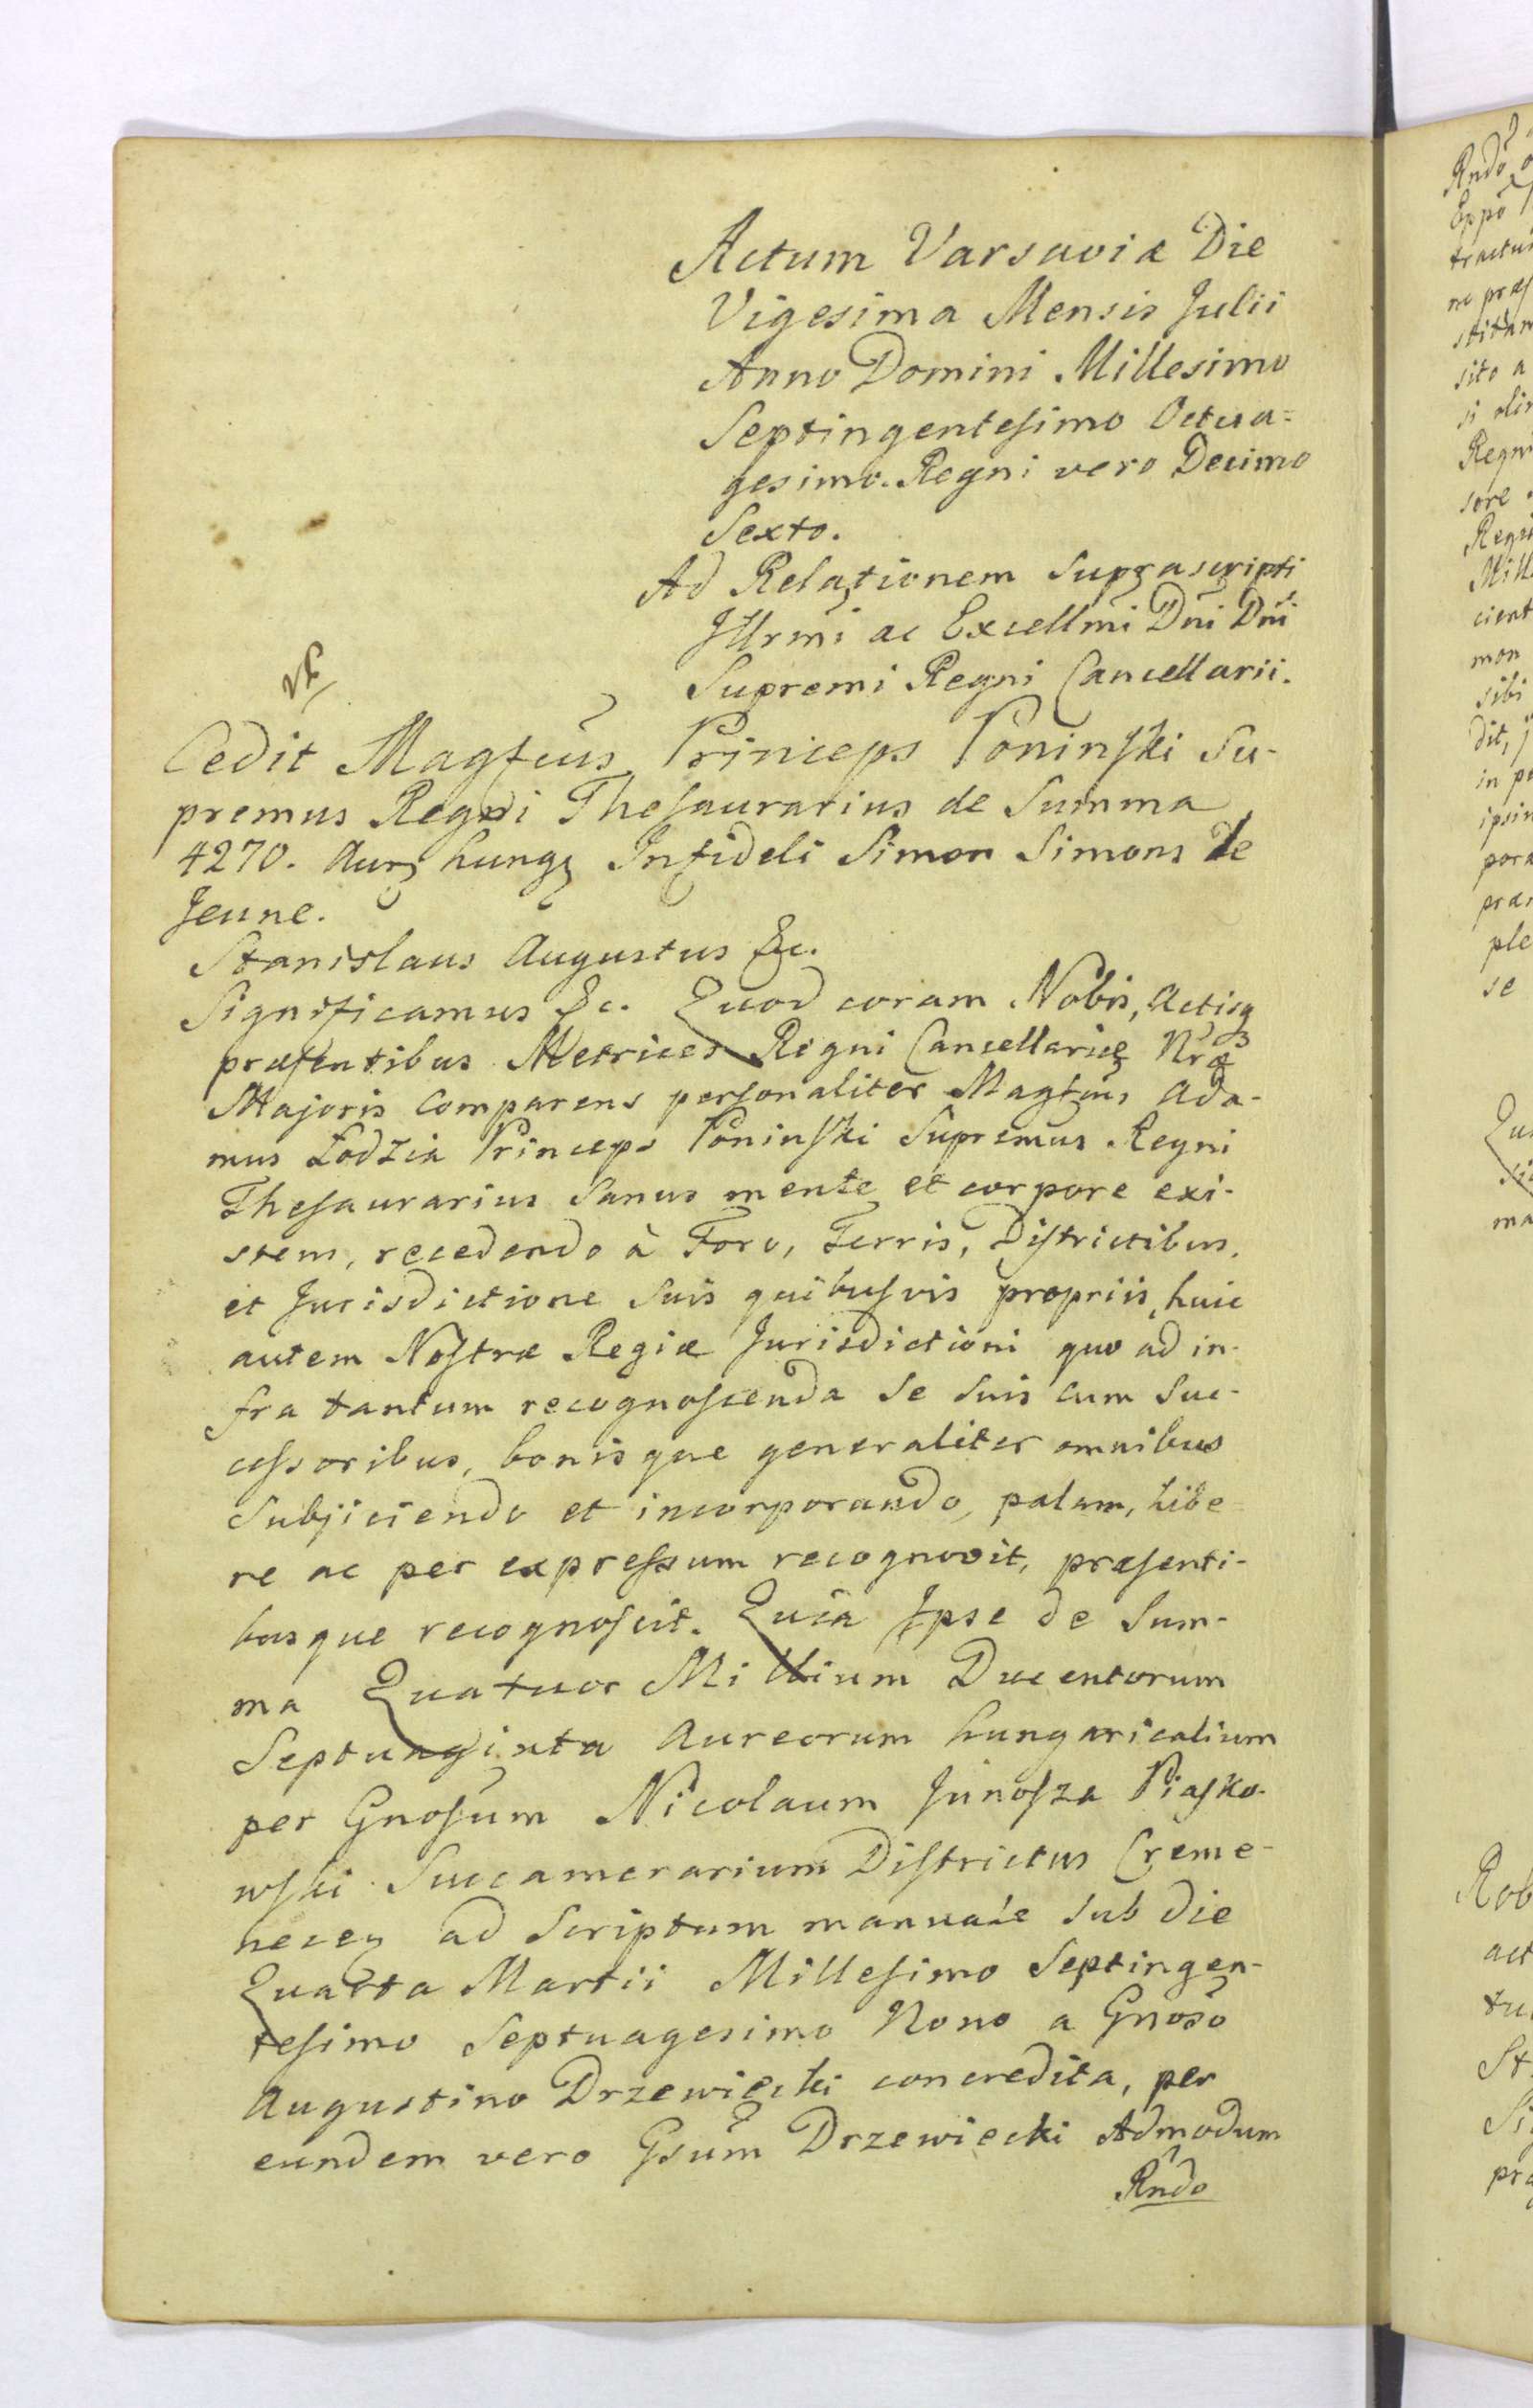 Actum Varsaviæ Die
Vigesima Mensis Julii
Anno Domini Millesimo
Septingentesimo Octua=
gesimo. Regni vero Decimo
Sexto.
Ad Relationem Suprascripti
Illrmi ac Excellmi Dni Dni
Supremi Regni Cancellarii.
Cedit Magfcus Princeps Poninski Su-
premus Regni Thesaurarius de Summa
4270. Aur hung Infideli Simon Simons le
Jeune.
Stanislaus Augustus &c.
Significamus &c. Quod coram Nobis, Actisq
præsentibus Metrices Regni Cancellariæ Nræ
Majoris Comparens personaliter Magfcus Ada-
mus Lodzia Princeps Poninski Supremus Regni
Thesaurarius Sanus mente et corpore exi-
stens, recedendo à Foro, Terris, Districtibus,
et Jurisdictione Suis quibusvis propriis, huic
autem Nostræ Regiæ Jurisdictioni quo ad in-
fra tantum recognoscenda Se Suis cum Suc-
cessoribus, bonisque generaliter omnibus
Subjiciendo et incorporando, palam, libe
re ac per expressum recognovit, præsenti-
busque recognoscit. Quia Ipse de Sum-
ma Quatuor Millium Ducentorum
Septuaginta Aureorum hungaricalium
per Gnosum Nicolaum Junosza Piasko-
wski Succamerarium Districtus Creme-
necen ad Scriptum manuale Sub die
Quarta Martii Millesimo Septingen-
tesimo Septuagesimo Nono a Gnoso
Augustino Drzewiecki concredita, per
eundem vero Gsum Drzewiecki Admodum
Rndo
Rndo
Eppo
Regni
sore
sito a
cient
mon
sibi
dit,
ple
se